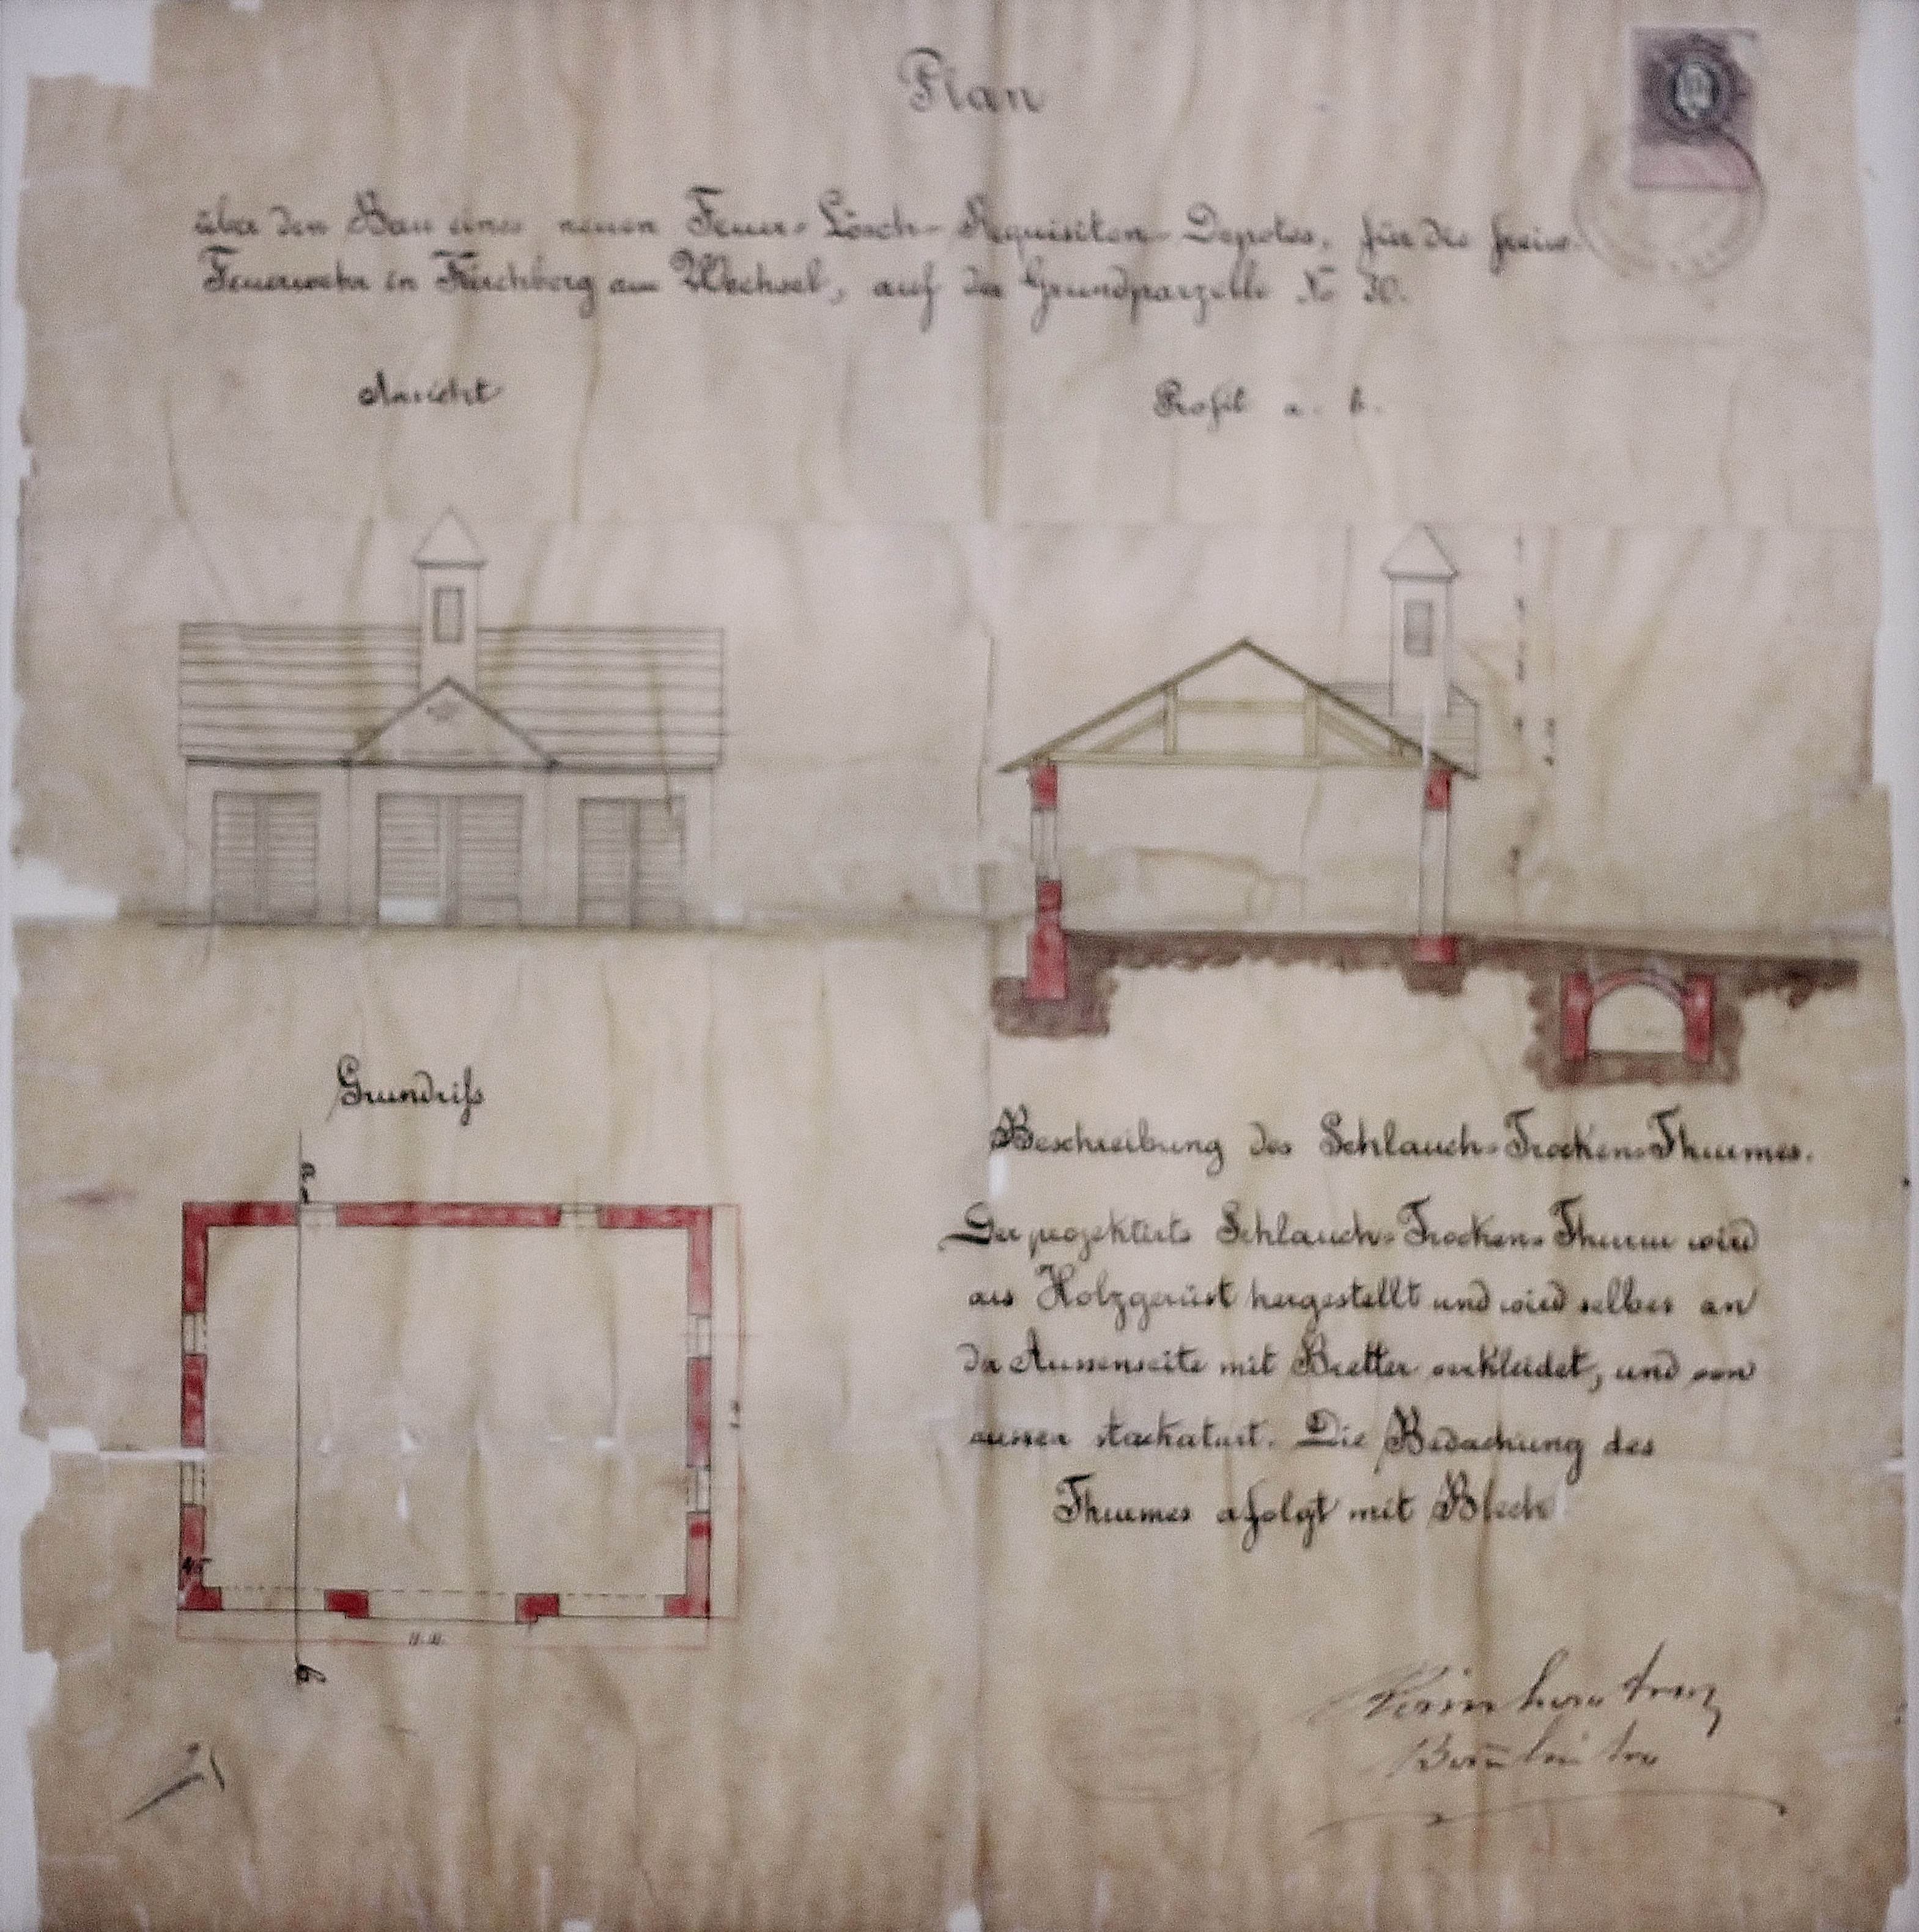 Plan
über den Bau eines neuen Feuer-Lösch-Requisiten-Depotes, für die freiw.
Feuerwehr in Kirchberg am Wechsel, auf der Grundparzelle No 30.
Ansicht
Profil a. b.
Grundriſs
Beschreibung des Schlauch-Trocken-Thurmes.
Der projektirte Schlauch-Trocken-Thurm wird
aus Holzgerüst hergestellt und wird selber an
der Aussenseite mit Bretter verkleidet, und von
aussen stackaturt. Die Bedachung des
Thurmes erfolgt mit Blech
45